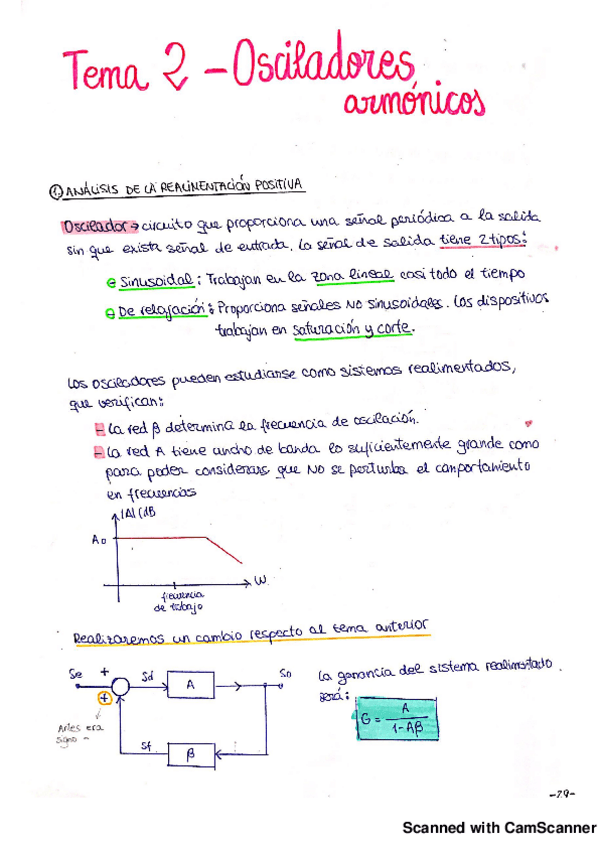 Tema 2 - Osciladores
armónicos
1. ANÁLISIS DE LA REALIMENTACIÓN POSITIVA
Oscilador → circuito que proporciona una señal periódica a la salida
sin que exista señal de entrada. La señal de salida tiene 2 tipos:
Sinusoidal: Trabajan en la zona lineal casi todo el tiempo
De relajación: Proporciona señales NO sinusoidales. Los dispositivos
trabajan en saturación y corte.
Los osciladores pueden estudiarse como sistemas realimentados,
que verifican:
- La red β determina la frecuencia de oscilación.
- La red A tiene ancho de banda lo suficientemente grande como
para poder considerar que NO se perturba el comportamiento
en frecuencias
|A| (dB
A0
W
frecuencia
de trabajo
Realizaremos un cambio respecto al tema anterior
Se + Sd A So
+
Antes era
signo -
Sf β
La ganancia del sistema realimentado
será:
G = A / 1-Aβ
-29-
Scanned with CamScanner